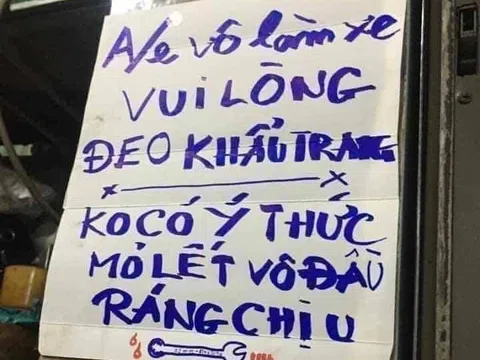 A/e vô làm xe
VUI LÒNG
ĐEO KHẨU TRANG
KO CÓ Ý THỨC
MỎ LẾT VÔ ĐẦU
RÁNG CHỊU